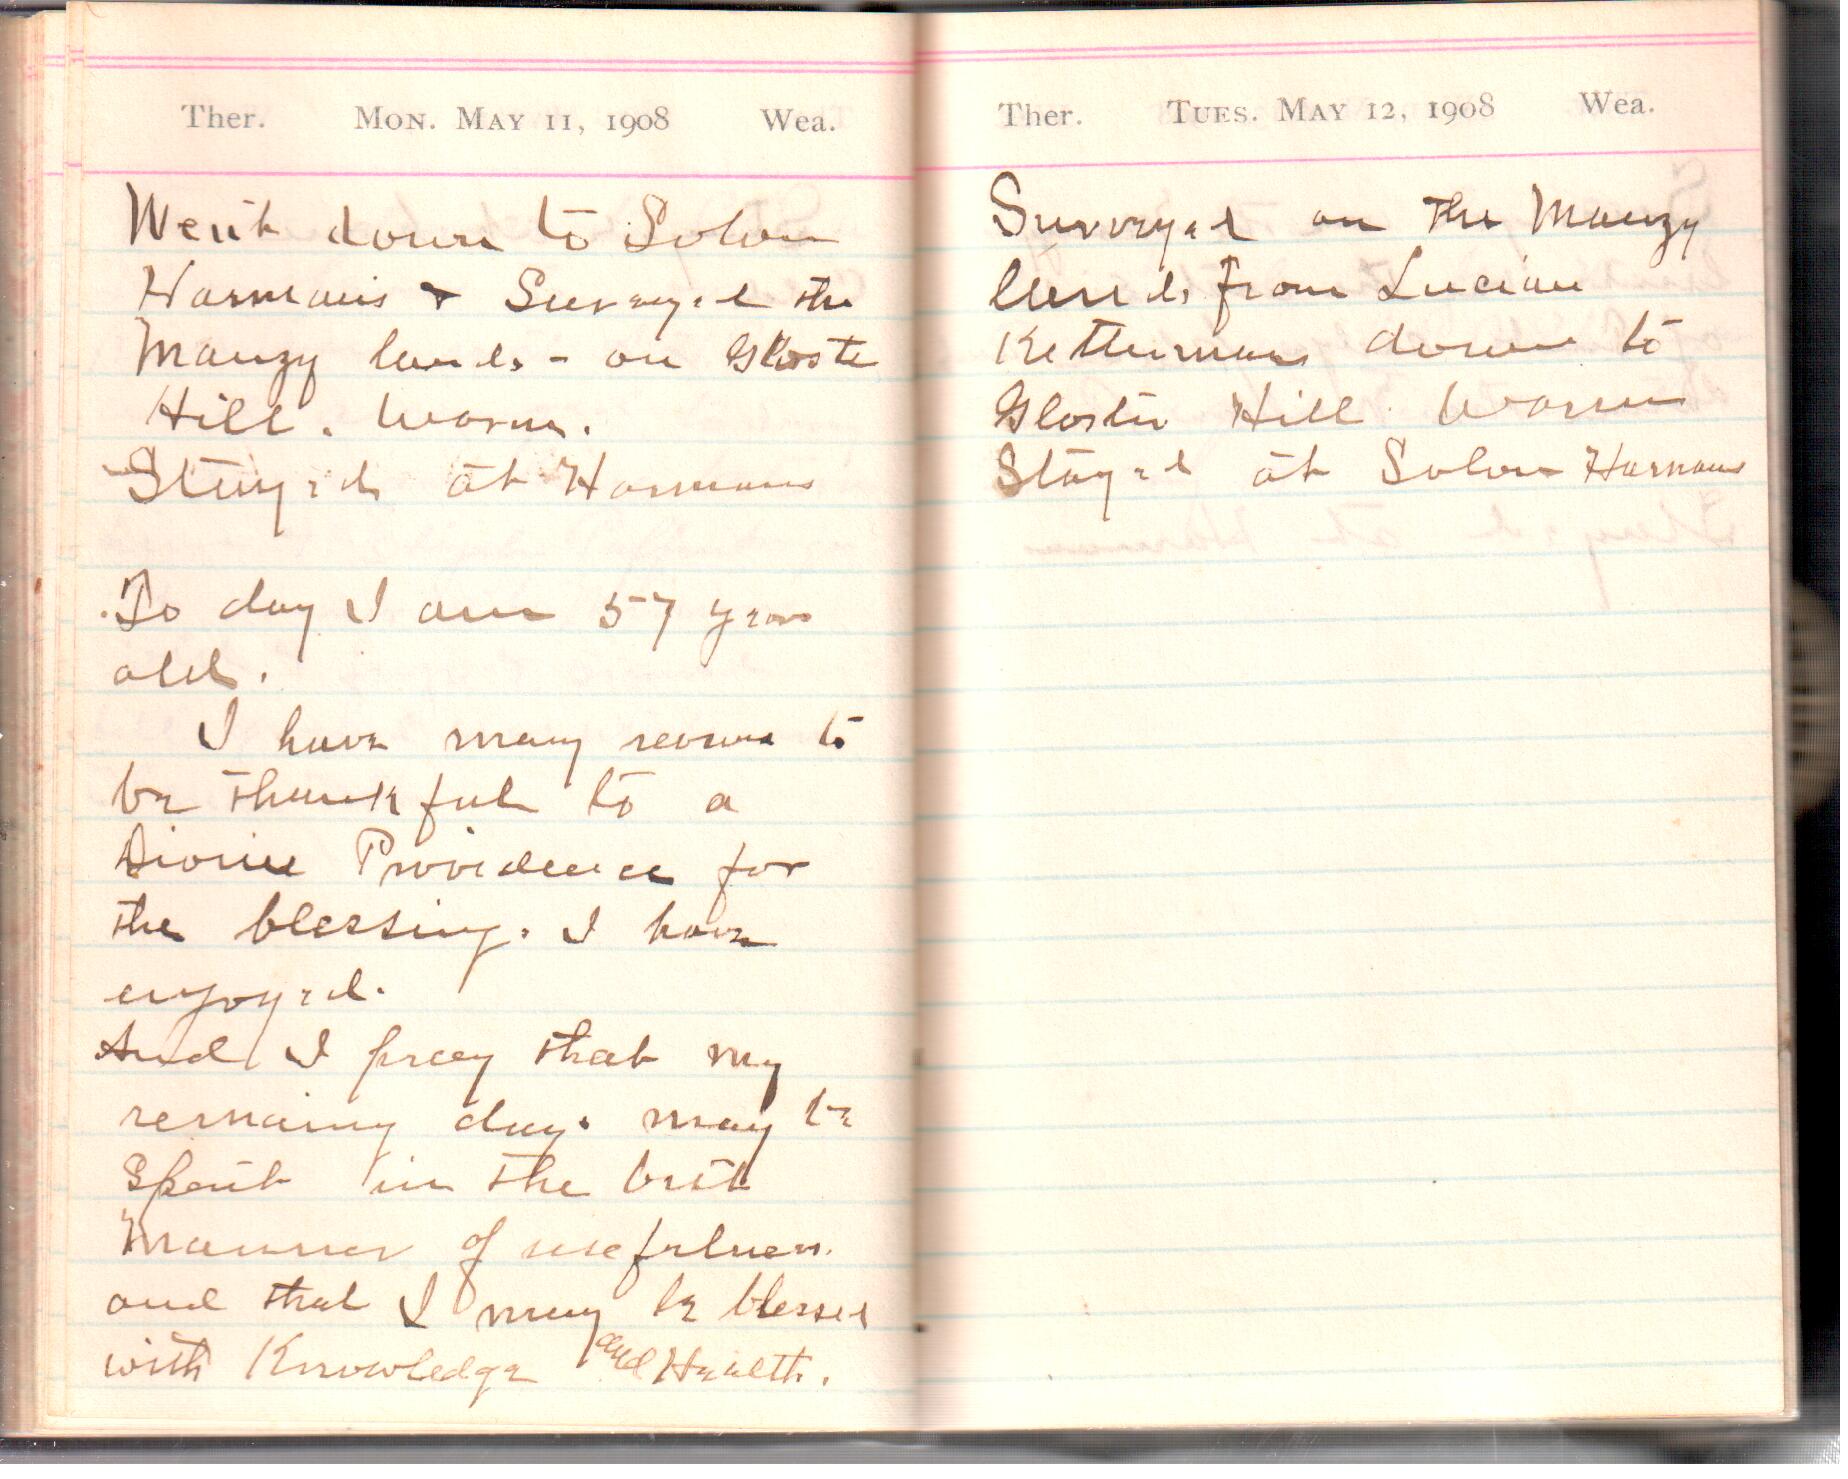 Ther. Mon. May 11, 1908 Wea.
Went down to Solon
Harmans & Surveyed the
Mauzy lands - on
Hill. Warm.
Stayed at Harmans
To day I am 57 years
old.
I have many reasons to
be thankful to a
Divine Providence for
the blessings I have
enjoyed.
And I pray that my
remaing days may be
spent in the best
manner of usefulness.
and that I may be blessed
with Knowledge and Health.
Ther. Tues. May 12, 1908 Wea.
Surveyed on the Mauzy
lands from Lucian
Kettermans down to
Gloster Hill. Warm
Stayed at Solon Harmans